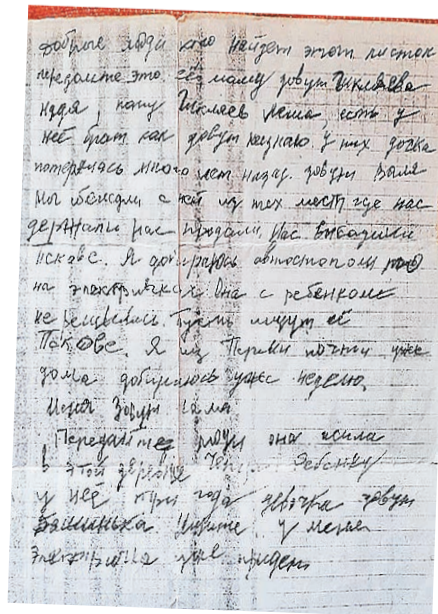 Добрые люди кто найдет этот листок
передайте это. её маму зовут Чикляева
Надя, папу Чикляев Леша, есть у
неё брат как зовут незнаю. У них дочка
потерялась много лет назад. Зовут Валя
Мы сбежали с ней из тех мест где нас
держали нас продали. Нас вывозили
Я добираюсь автостопом
на электричках. Она с ребенком
не решилась. Пусть ищут её
Я из Перми почти уже
дома добираюсь уже неделю.
Меня зовут
Передайте она жила
в этой деревне
у неё три года девочка зовут
Ищите, у меня
Электричка уже